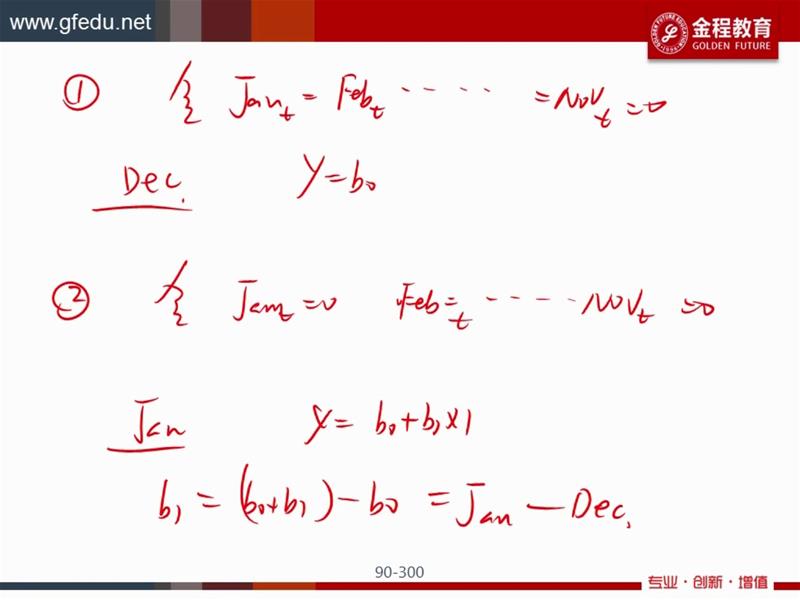 www.gfedu.net
金程教育
GOLDEN FUTURE
① 令 Jan_t = Feb_t ····· = Nov_t = 0
Dec. Y = b₀
② 令 Jan_t = 0 Feb_t = ····· Nov_t = 0
Jan Y = b₀ + b₁ × 1
b₁ = (b₀+b₁) - b₀ = Jan - Dec.
90-300
专业·创新·增值